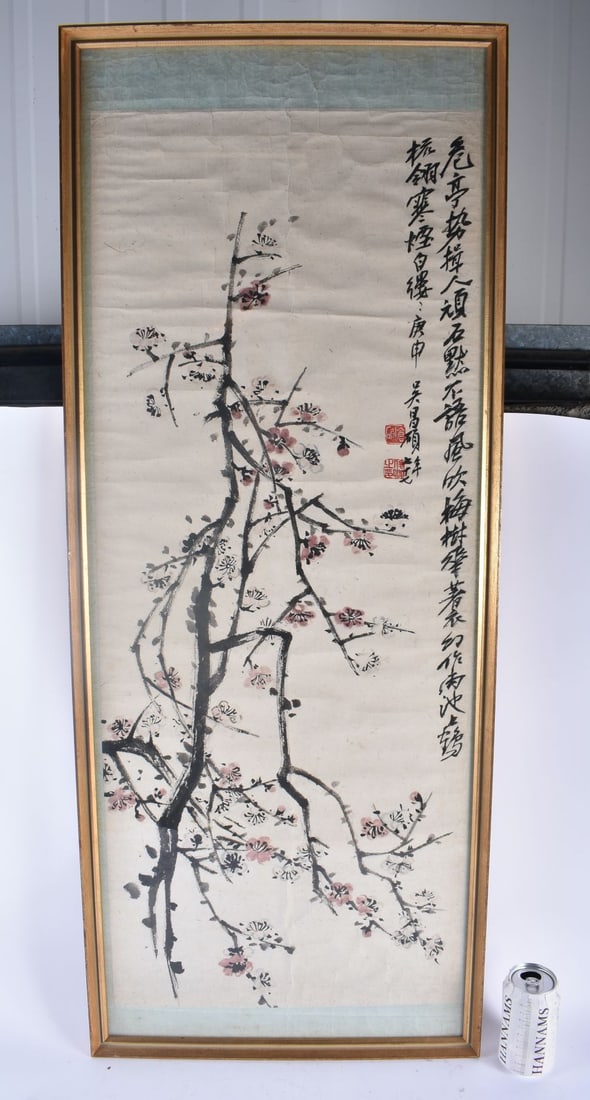 危亭勢揖人頑石默不語風吹梅樹華著衣幻作雨池上鶴
梳翎寒煙白縷〻庚申 吳昌碩年七七
HANNAMS
HANNAMS